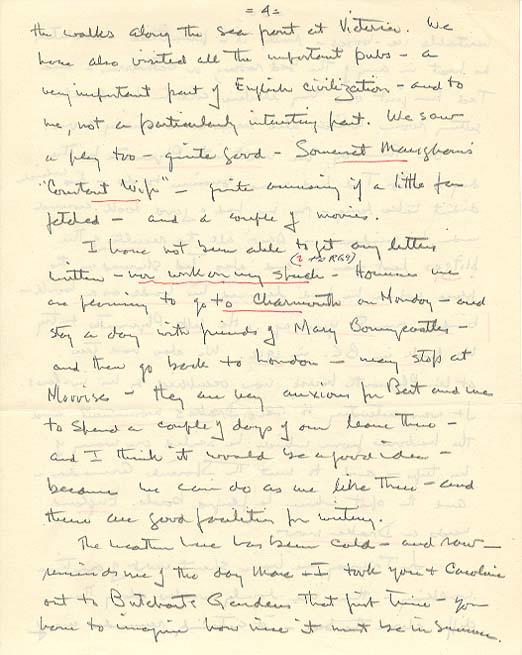 = 4 =
the walks along the sea front at Victoria. We
have also visited all the important pubs - a
very important part of English civilization - and to
me, not a particularly interesting part. We saw
a play too - quite good - Somerset Maugham's
"Constant Wife" - quite amusing if a little far
fetched - and a couple of movies.
I have not been able to get any letters
written - nor work on my speech - However we
are planning to go to Charmouth on Monday - and
stay a day with friends of Mary Bonnycastles -
and then go back to London - may stop at
- they are very anxious for Bert and me
to spend a couple of days of our leave there -
and I think it would be a good idea -
because we can do as we like there - and
there are good facilities for writing.
The weather here has been cold - and raw -
reminds me of the day + I took you + Caroline
out to Butchart's Gardens that first time - you
have to imagine how nice it must be in summer.